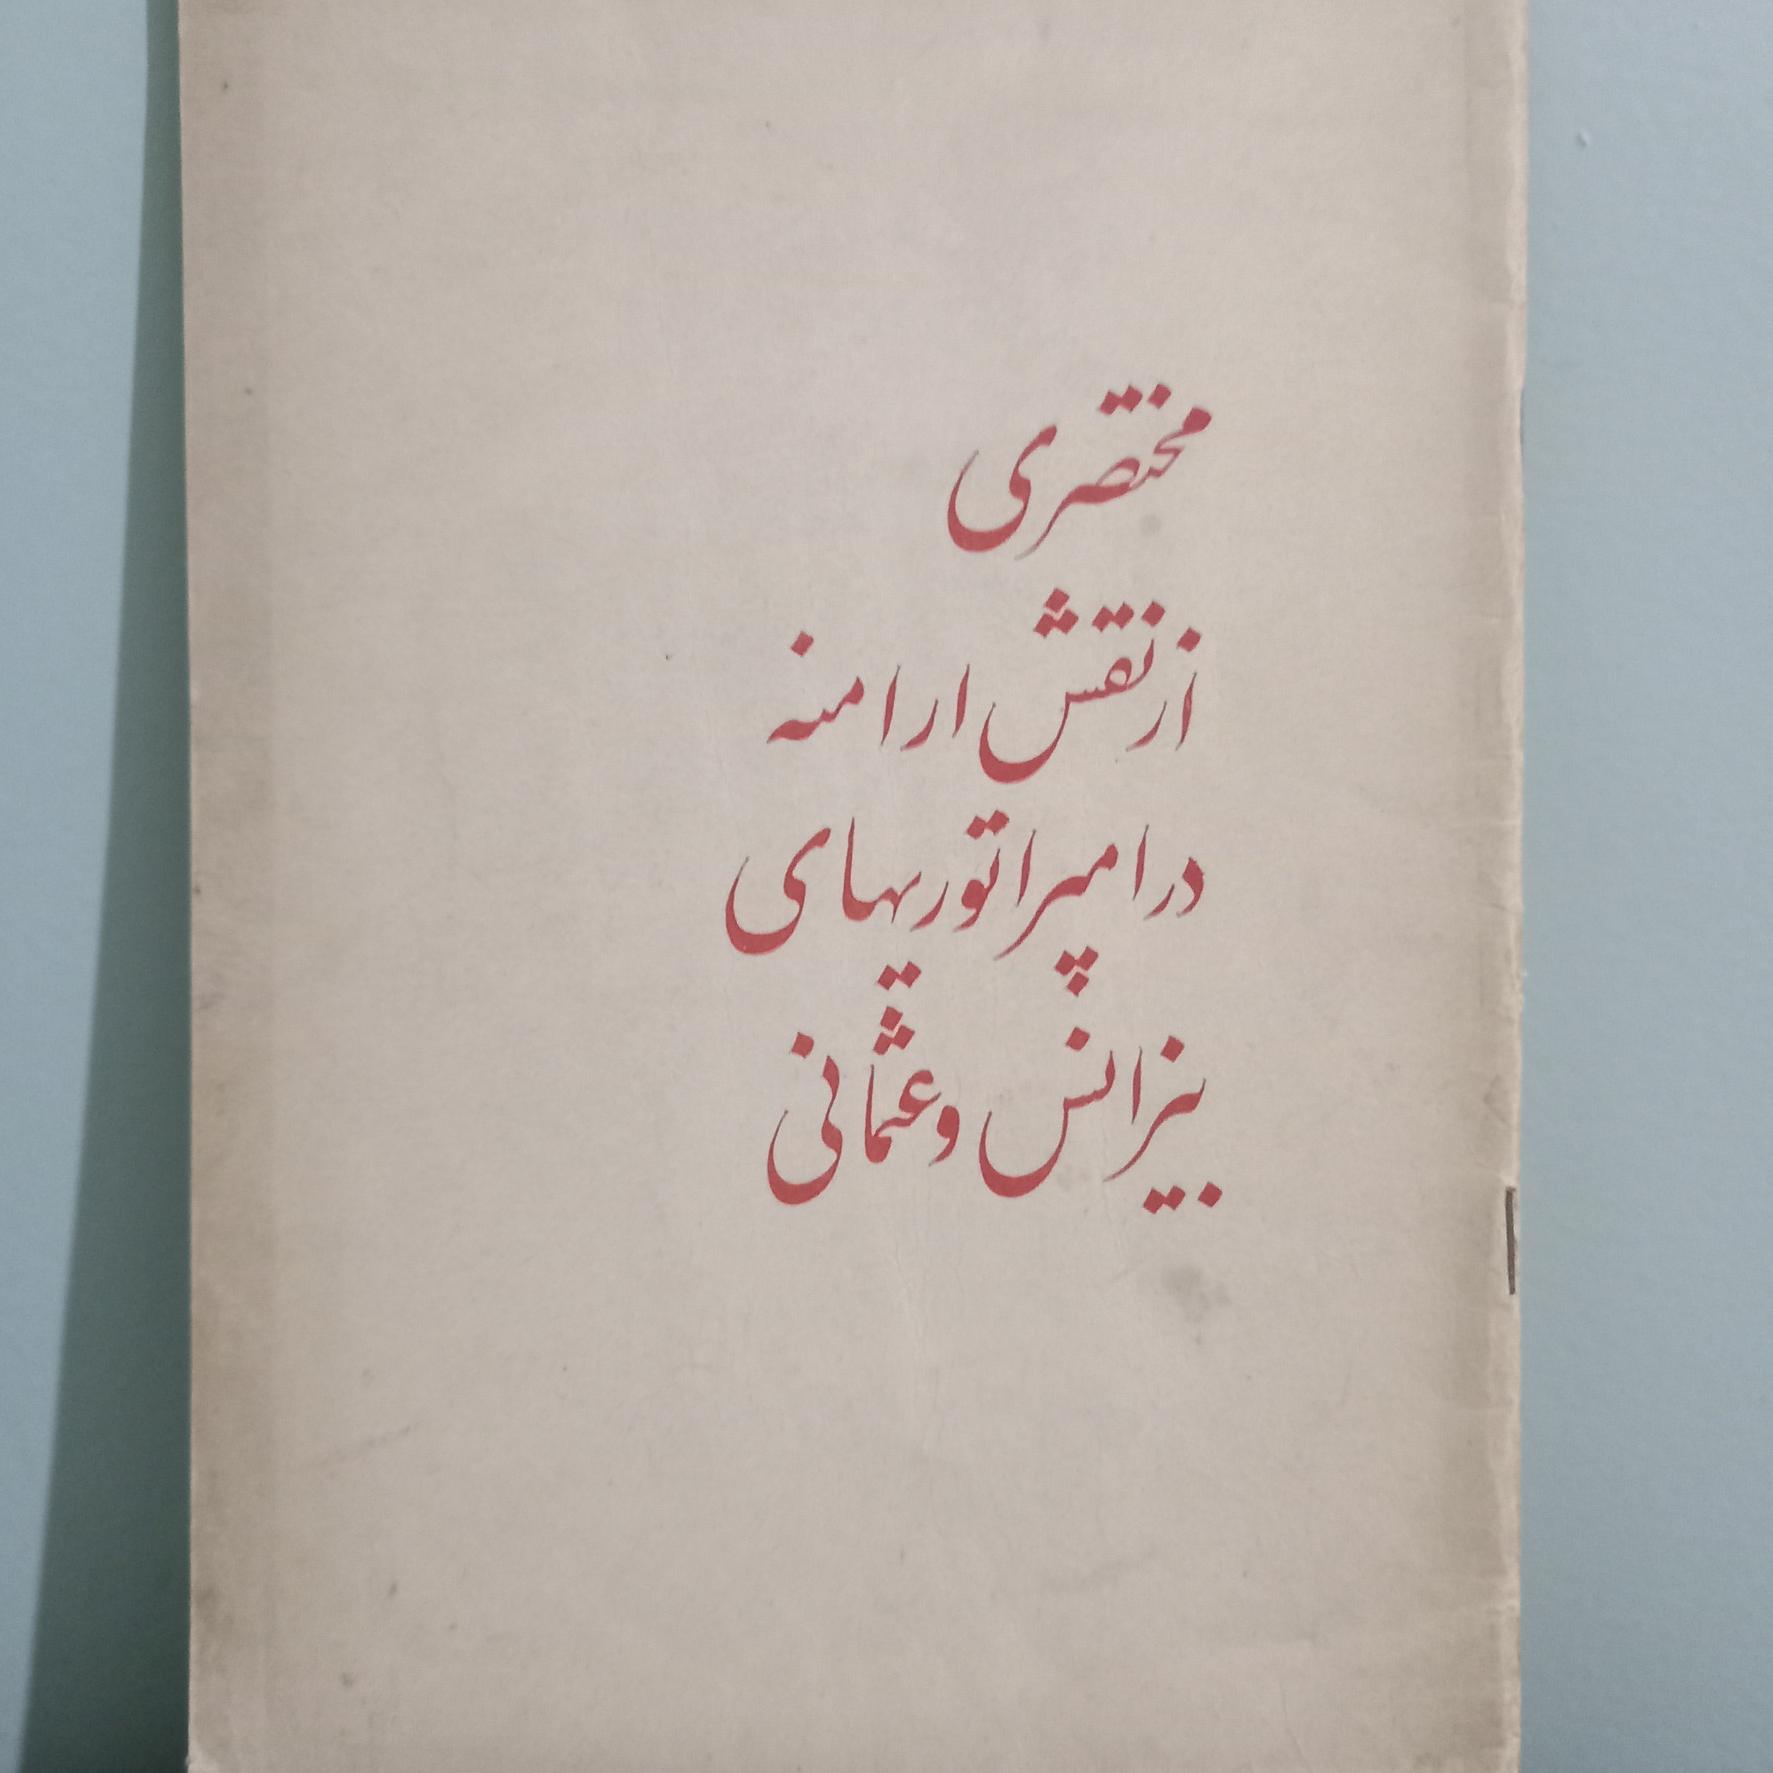 مختصری
از نقش ارامنه
در امپراتوریهای
بیزانس و عثمانی